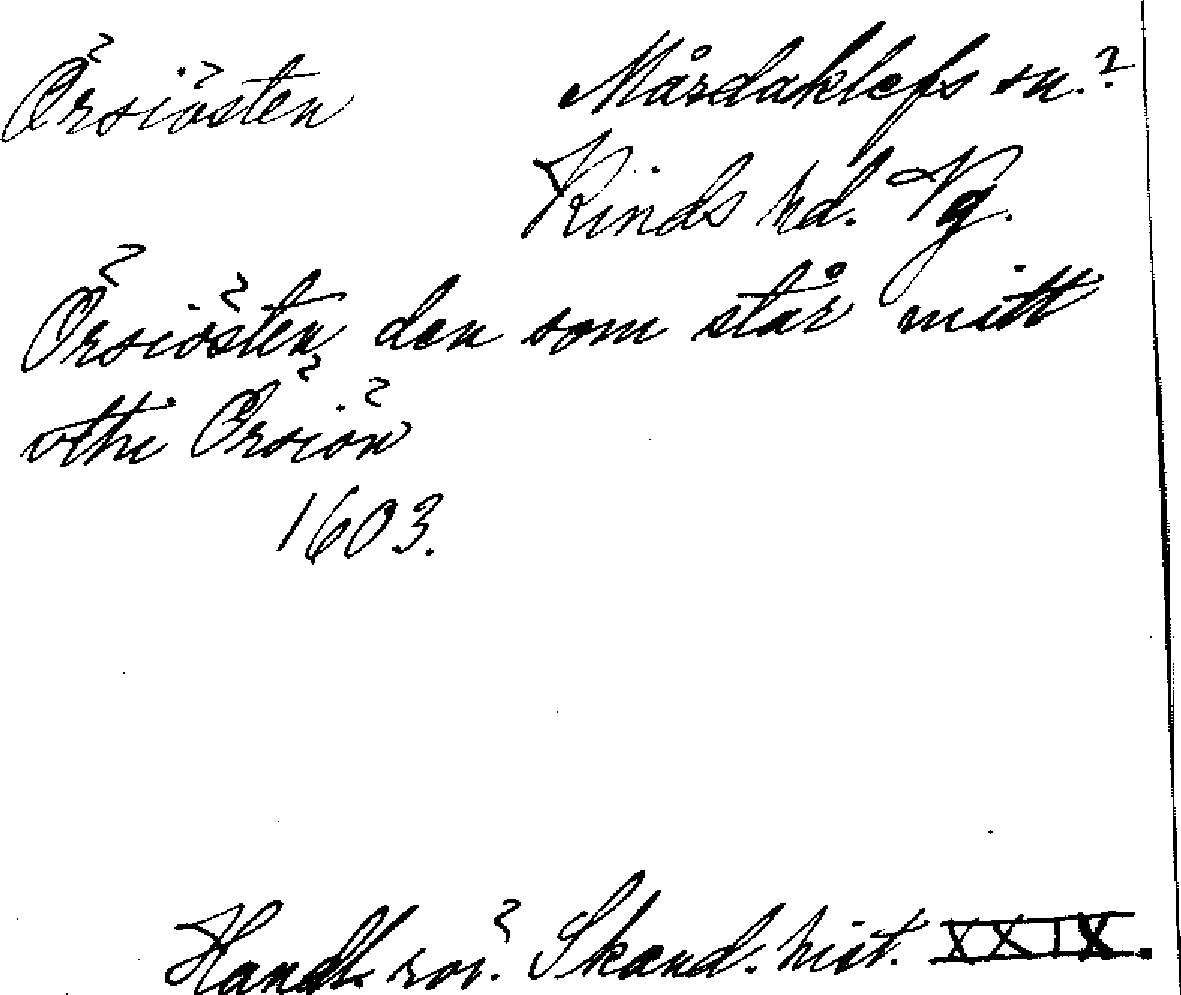 Örsiösten Mårdaklefs sn.?
Kinds hd. Vg.
Örsiösten, den som står mitt
vthi Örsiön
1603.
Handl. rör. Skand. hist. XXIX.